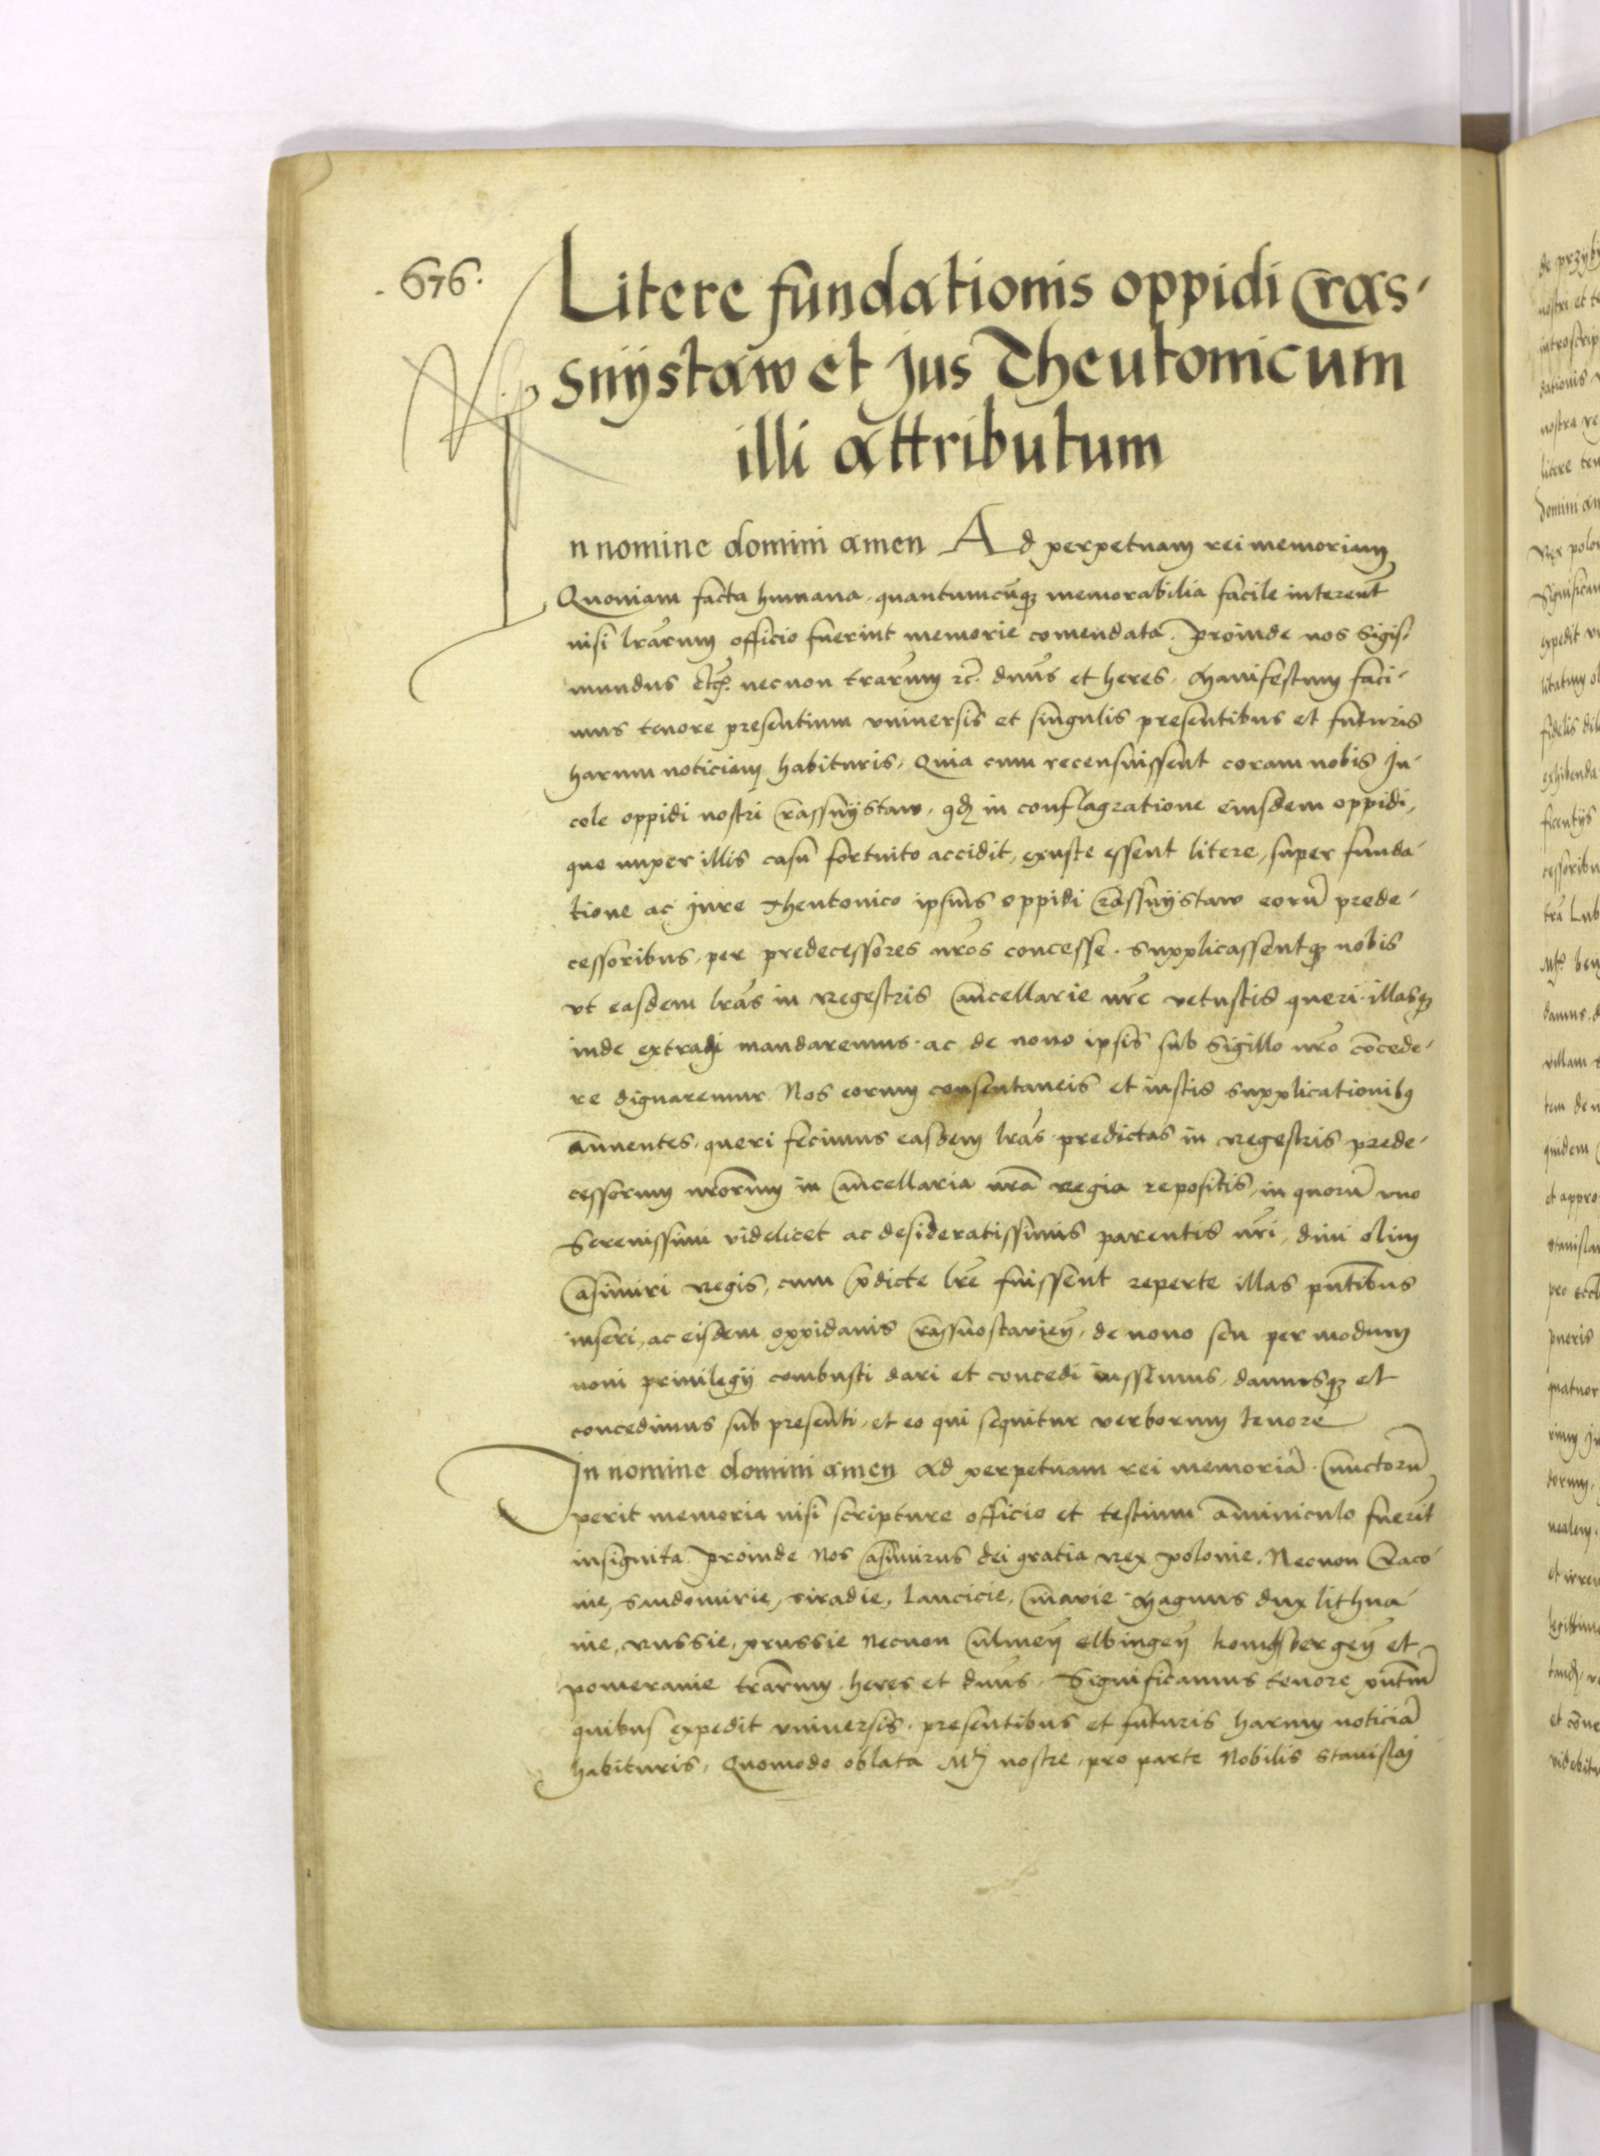 . 676 .
Litere fundationis oppidi Cras-
snijstaw et jus Theutonicum
illi attributum
In nomine domini amen Ad perpetuam rei memoriam
Quoniam facta humana, quantumcūqꝫ memorabilia facile intereūt
nisi lrārum officio fuerint memorie comendata. Proinde nos Sigis-
mundus etcꝭ. necnon trārum ꝛc̄. dnūs et heres, Manifestum faci-
mus tenore presentium vniversis et singulis presentibus et futuris
harum noticiam habituris, Quia cum recensuissent coram nobis In-
cole oppidi nostri Crassnijstaw, qđ in conflagratione eiusdem oppidi,
que nuper illis casu fortuito accidit, exuste essent litere, super funda-
tione ac jure Theutonico ipsius oppidi Crassnijstaw eorū prede-
cessoribus, per predecessores nr̄os concesse. Supplicassentqꝫ nobis
vt easdem lrās in Regestris Cancellarie nr̄e vetustis queri illasqꝫ
inde extrahi mandaremus ac de nouo ipsis sub Sigillo nr̄o cōncede-
re dignaremur Nos eorum consentaneis et iustis supplicationibꝰ
annuentes, queri fecimus easdem lrās predictas in Regestris prede-
cessorum nr̄orum in Cancellaria nr̄a Regia repositis, in quorū vno
Serenissimi videlicet ac desideratissimis parentis nr̄i, diui olim
Casimiri Regis, cum p̄dicte lrē fuissent reperte illas pn̄tibus
inseri, ac eisdem oppidanis Crassnostavieñ, de nouo seu per modum
noui priuilegij combusti dari et concedi iussimus, damusqꝫ et
concedimus sub presenti, et eo qui sequitur verborum tenore
In nomine domini amen ad perpetuam rei memoriā. Cunctorū
perit memoria nisi scripture officio et testium amminiculo fuerit
insignita. Proinde Nos Casimirus dei gratia Rex polonie, Necnon Craco-
uie, Sandomirie, Siradie, Lancicie, Cuiavie. Magnus dux lithua-
nie, Russie, prussie Necnon Culmeñ elbingeñ konigsbergeñ et
pomeranie trārum heres et dnūs. Significamus tenore pn̄tiū
quibus expedit vniversis, presentibus et futuris harum noticiā
habituris, Quomodo oblata Mti nostre, pro parte Nobilis Stanislaj